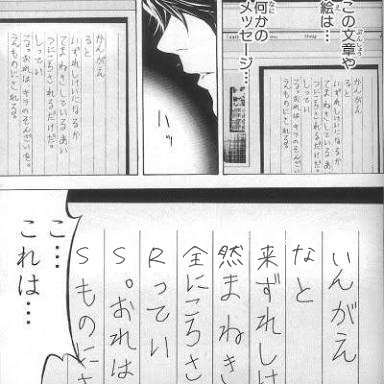 この文章や
絵は…
何かの
メッセージ…
かんがえ
ると
いずれしけいになるか
てまねきしているあい
つにころされるだけだ。
しってい
る。おれは キラのそんざいを。
ハッ
かんがえ
ると
いずれしけいになるか
てまねきしているあい
つにころされるだけだ。
しってい
る。おれは キラのそんざいを。
いんがえ
なと
来ずれしけ
然まねき
全にころさ
Rってい
S。おれは
Sものにさ
こ…
これは…